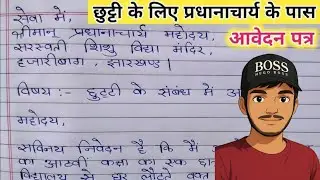 छुट्टी के लिए प्रधानाचार्य के पास
आवेदन पत्र
सेवा में,
श्रीमान् प्रधानाचार्य महोदय,
सरस्वती शिशु विद्या मंदिर,
हजारीबाग, झारखण्ड।
विषय:- छुट्टी के संबंध में आ
महोदय,
सविनय निवेदन है कि मैं आ
का आठवीं कक्षा का एक छा
विद्यालय से घर लौटते वक्त
BOSS
HUGO BOSS